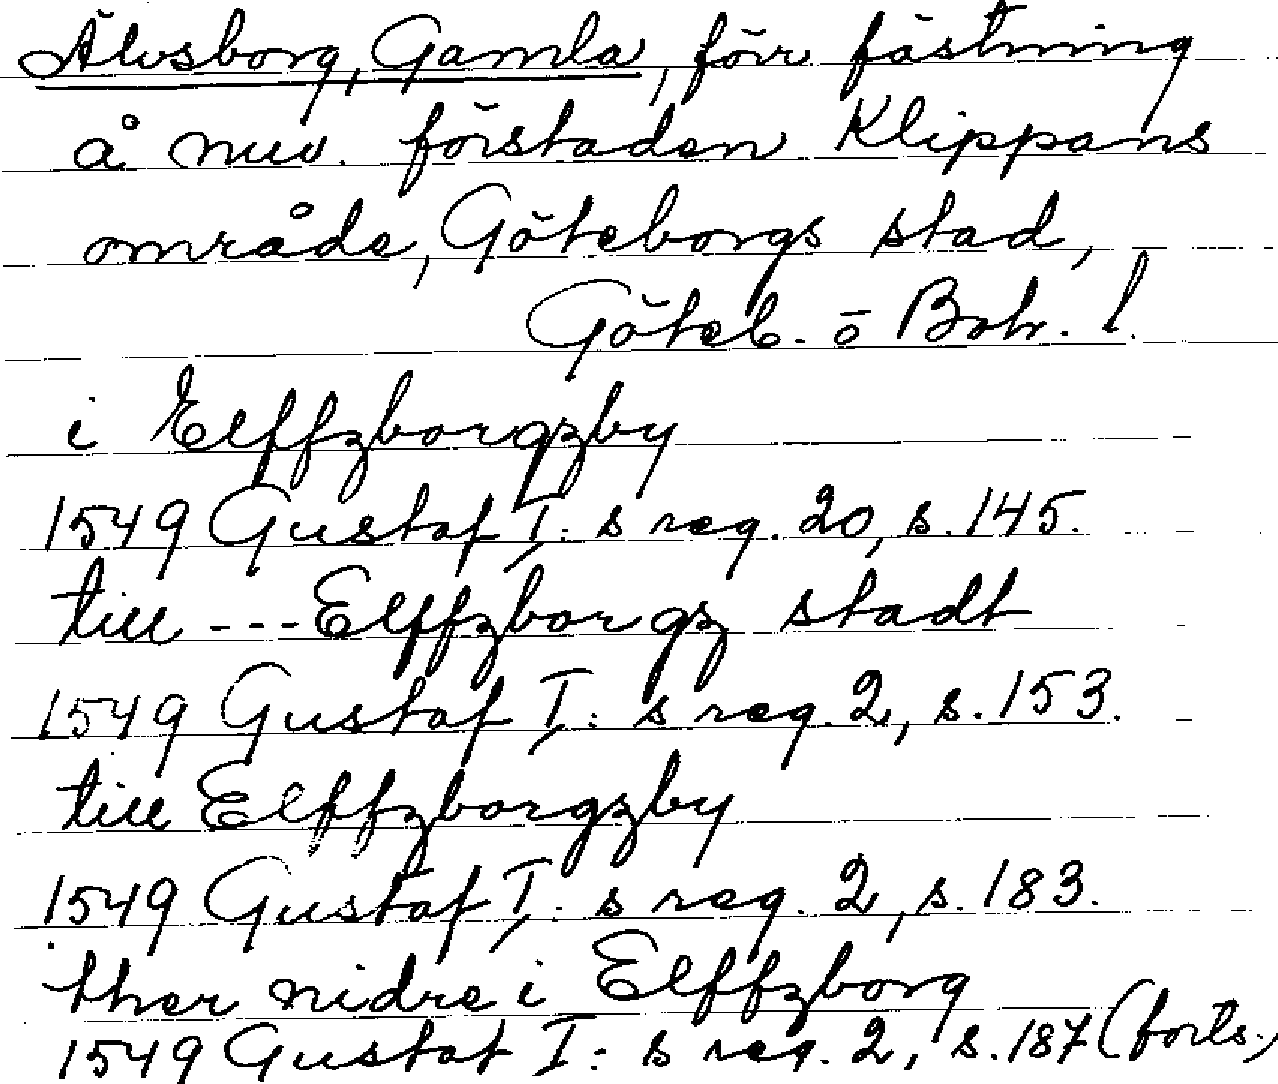 Älvsborg, Gamla, förr fästning
å nuv. förstaden Klippans
område, Göteborgs stad,
Göteb. o Boh. l.
i Elffzborgzby
1549 Gustaf I: s reg. 20, s. 145.
till --- Elffzborgz stadt
1549 Gustaf I: s reg. 2, s. 153.
till Elffzborgzby
1549 Gustaf I: s reg. 2, s. 183.
ther nidre i Elffzborg
1549 Gustaf I: s reg. 2, s. 187 (forts.)